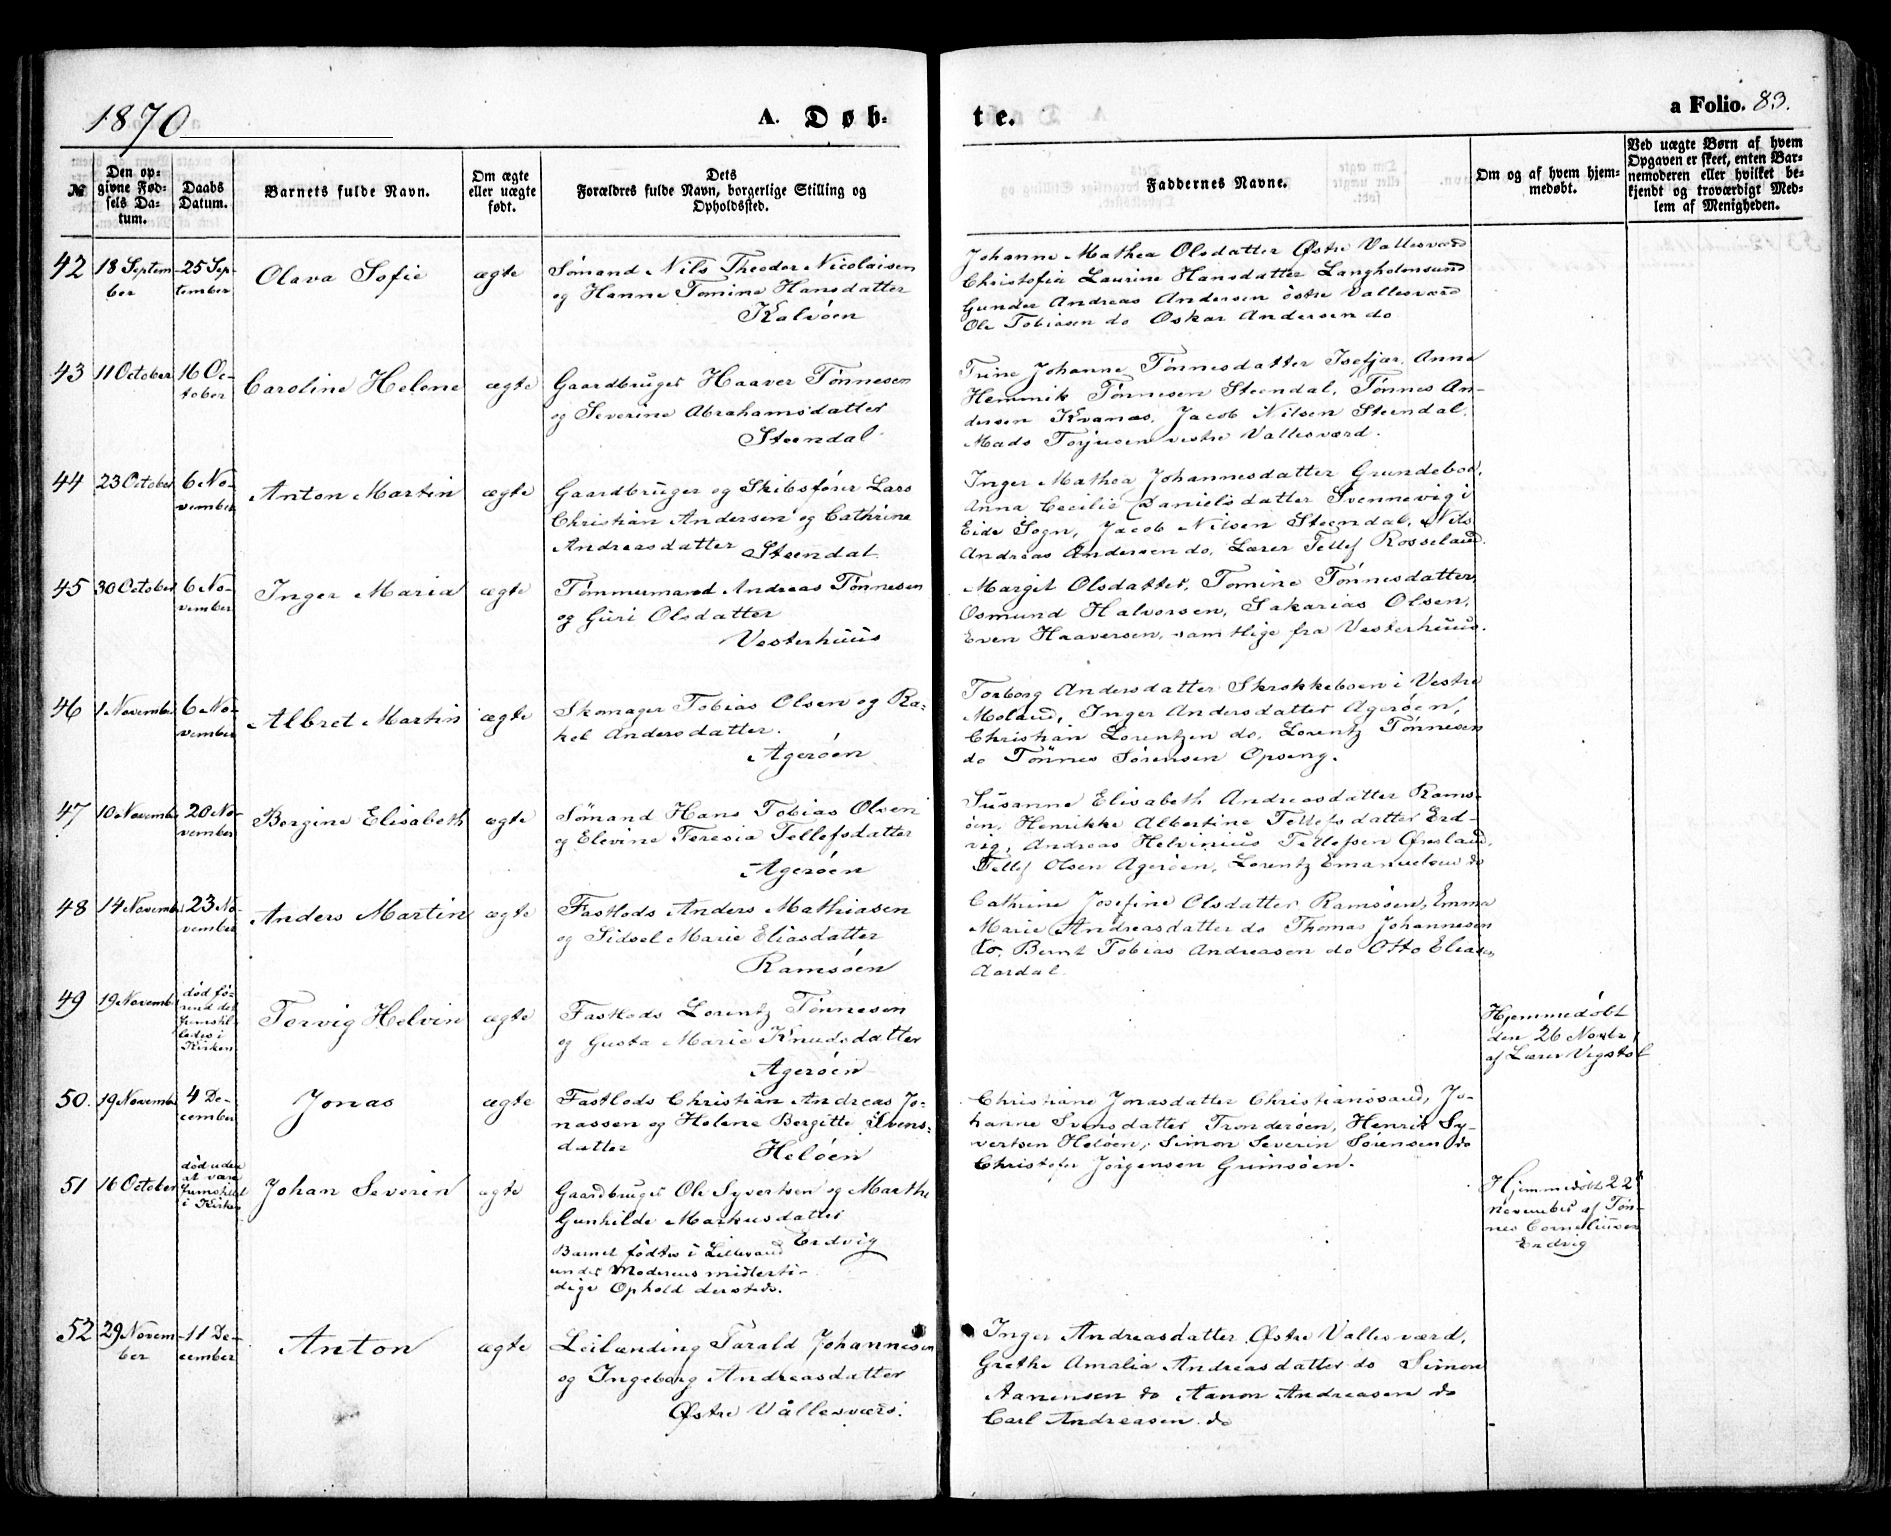 1870
A. Døb-
te.
a Folio. 83.
№
Den op-
givne Fød-
sels Da-
tum.
Daabs
Datum.
Barnets fulde Navn.
Om ægte
eller uægte
født.
Dets
Forældres fulde Navn, borgerlige Stilling og
Opholdssted.
Faddernes Navne.
Om og af hvem hjem-
medøbt.
Ved uægte Børn af hvem
Opgaven er skeet, enten Bar-
nemoderen eller hvilket be-
kjendt og troværdigt Med-
lem af Menigheden.
42
18 Septem-
ber
25 Sep-
tember
Olava Sofie
ægte
Sømand Nils Theodor Nicolaisen
og Hanne Tomine Hansdatter
Kalvøen
Johanne Mathea Olsdatter Østre Vallesværd
Christofia Laurine Hansdatter Langholmsund
Gunder Andreas Andersen østre Vallesværd
Ole Tobiasen do Oskar Andersen do
43
11 October
16 Oc-
tober
Caroline Helene
ægte
Gaardbruger Haaver Tønnesen
og Severine Abrahamsdatter
Steendal
Trine Johanne Tønnesdatter Isefjær, Anne
Hemmik Tønnesen Steendal, Tønnes An-
dersen Kvanæs, Jacob Nilsen Steendal,
Mads Torjusen vestre Vallesværd.
44
23 October
6 No-
vember
Anton Martin
ægte
Gaardbruger og Skibsfører Lars
Christian Andersen og Cathrine
Andreasdatter Steendal
Inger Mathea Johannesdatter Grundeboe,
Anna Cecilie Danielsdatter Svennevig i
Eide Sogn, Jacob Nilsen Steendal, Nils
Andreas Andersen do, Lærer Tellef Rosseland.
45
30 October
6 No-
vember
Inger Maria
ægte
Tømmermand Andreas Tønnesen
og Guri Olsdatter
Vesterhuus
Margit Olsdatter, Tomine Tønnesdatter,
Osmund Halvorsen, Sakarias Olsen,
Even Haaversen, samtlige fra Vesterhuus.
46
1 November
6 No-
vember
Albret Martin
ægte
Skomager Tobias Olsen og Ra-
kel Andersdatter.
Agerøen
Torborg Andersdatter Skrokkeboen i Vestre
Moland, Inger Andersdatter Agerøen,
Christian Lorentzen do, Lorentz Tønnesen
do Tønnes Sørensen Opseng.
47
10 November
20 No-
vember
Bergine Elisabeth
ægte
Sømand Hans Tobias Olsen
og Elevine Teresia Tellefsdatter
Agerøen
Susanne Elisabeth Andreasdatter Rams-
øen, Henrikke Albertine Tellefsdatter Erd-
vig, Andreas Helvinius Tellefsen Øresland,
Tellef Olsen Agerøen, Lorentz Emanuelsen do
48
14 November
23 No-
vember
Anders Martin
ægte
Fastlods Anders Mathiasen
og Sidsel Marie Eliasdatter
Ramsøen
Cathrine Josefine Olsdatter Ramsøen, Emma
Marie Andreasdatter do Thomas Johannesen
do. Bernt Tobias Andreasen do Otto Eliasen
Aardal
49
19 Novemb
død fø-
rend det
fremstil-
ledes i
Kirken
Torvig Helvin
ægte
Fastlods Lorentz Tønnesen
og Gusta Marie Knudsdatter
Agerøen
Hjemmedøbt
den 26 Novbr
af Lærer Vigstøl
50.
19 Novemb
4 De-
cember
Jonas
ægte
Fastlods Christian Andreas Jo-
nassen og Helene Bergitte Svens-
datter
Heløen
Christiane Jonasdatter Christianssand, Jo-
hanne Svensdatter Tronderøen, Henrik Sy-
vertsen Heløen, Simon Severin Sørensen do
Christofer Jørgensen Grimsøen.
51
16 October
død uden
at være
fremstillet
i Kirken
Johan Severin
ægte
Gaardbruger Ole Syvertsen og Marthe
Gunhilde Markusdatter
Erdvig
Barnet fødtes i Lillesand
under Moderens midlerti-
dige Ophold dersteds.
Hjemmedøbt 22
November af Tøn-
nes Corneliussen
Erdvig
52
29 Novem-
ber
11 De-
cember
Anton
ægte
Leilænding Tarald Johannesen
og Ingeborg Andreasdatter
Østre Vallesværd.
Inger Andreasdatter Østre Vallesværd,
Grethe Amalia Andreasdatter do Simon
Aanensen do Aanon Andreasen do
Carl Andreasen do